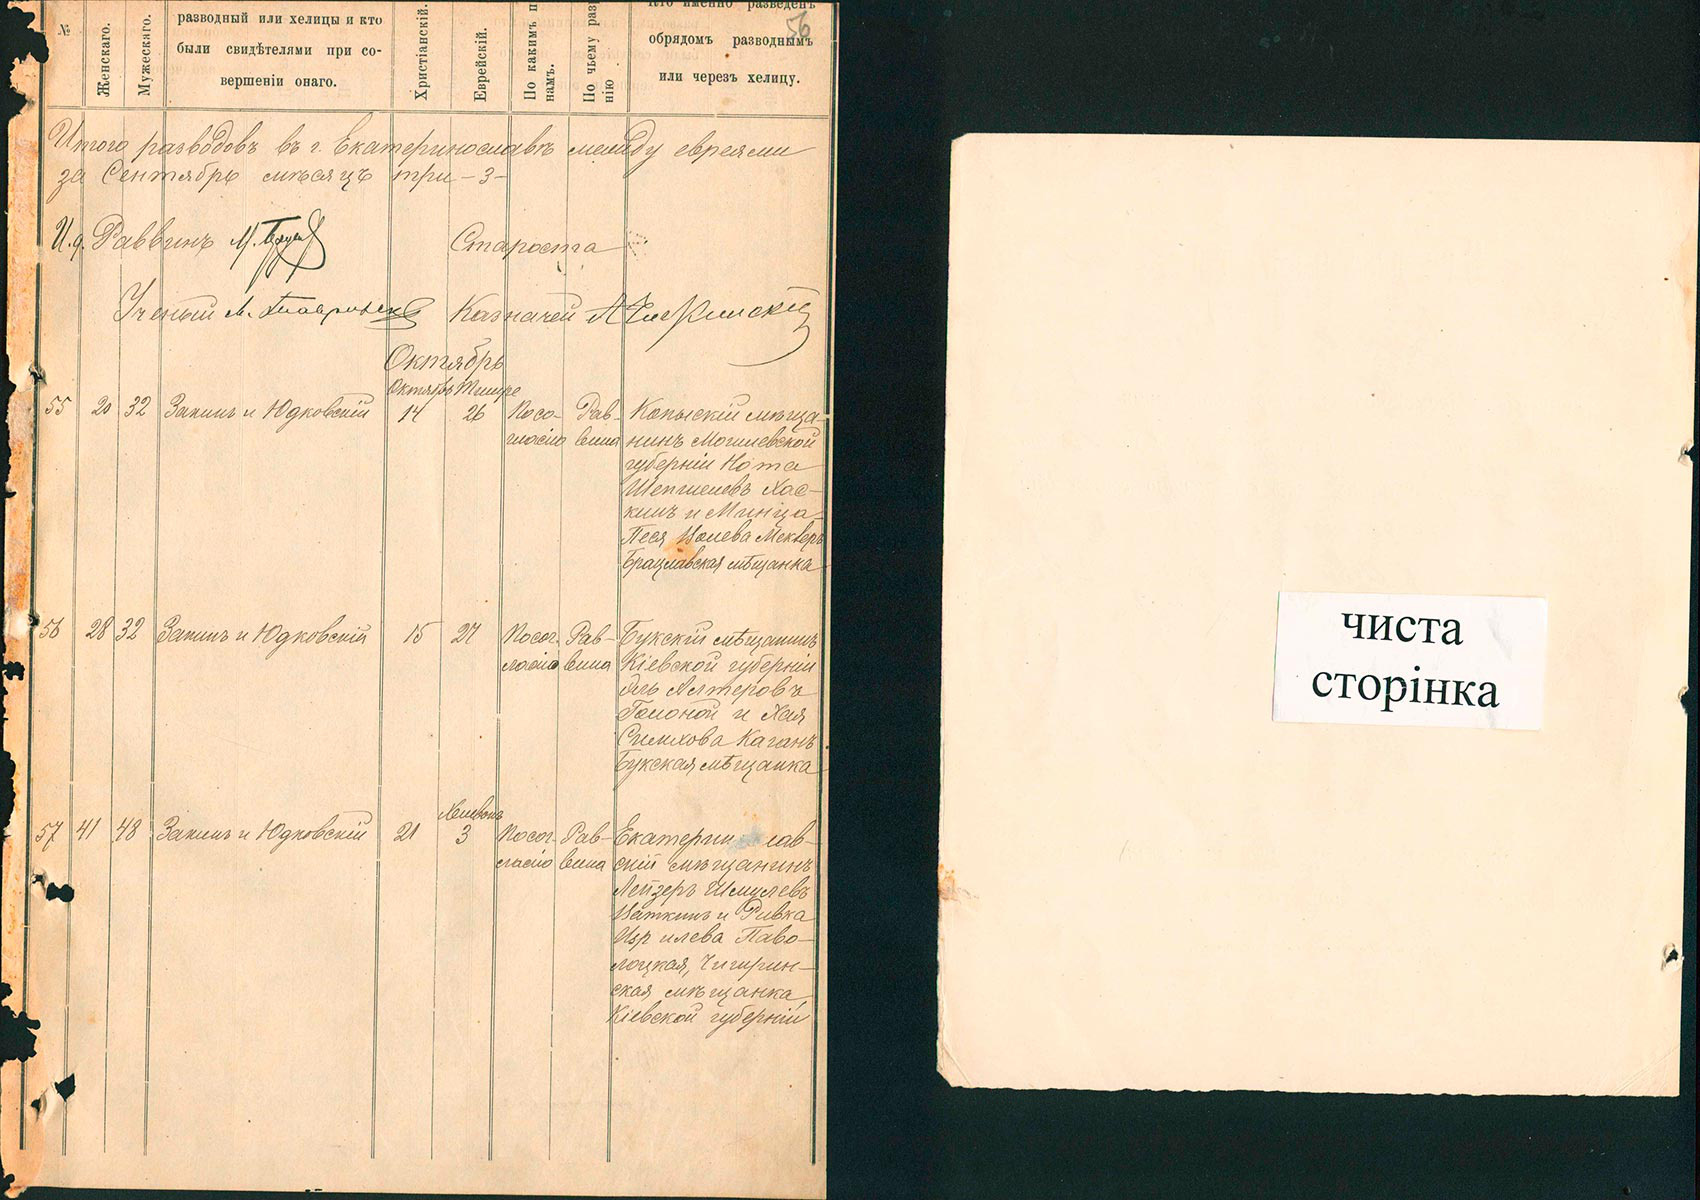 56
№
Женскаго.
Мужескаго.
разводный или хелицы и кто
были свидѣтелями при со-
вершеніи онаго.
Христіанскій.
Еврейскій.
По какимъ п
намъ.
По чьему раз
нію
Кто именно разведенъ
обрядомъ разводнымъ
или черезъ хелицу.
Итого разводовъ въ г. Екатеринославѣ между евреями
за Сентябрь мѣсяцъ три - 3 -
И. д. Раввинъ М.
Староста
Ученый Казначей
Октябрь
Октябрь Тишре
55 20 32 Запинъ и Юдковскій 14 26 По со-
гласію Рав-
вина
Копыскій мѣща-
нинъ Могилевской
губерніи Нота
Шепшелевъ Хас-
кинъ и Минца-
Песя
Брацлавская мѣщанка
56 28 32 Запинъ и Юдковскій 15 27 По сог-
ласію Рав-
вина
Букскій мѣщанинъ
Кіевской губерніи
Эль Алтеровъ
и Хая
Симхова Каганъ
Букская мѣщанка
Хешвонъ
57 41 48 Запинъ и Юдковскій 21 3 По сог-
ласію Рав-
вина
Екатеринославъ-
скій мѣщанинъ
Лейзеръ Шмулевъ
Наткинъ и Ривка
Изрилева Паво-
лоцкая, Чигирин-
ская мѣщанка,
Кіевской губерніи
чиста
сторінка